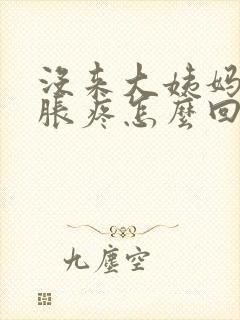 沒来大姨妈
脹疼怎麼回
九塵空